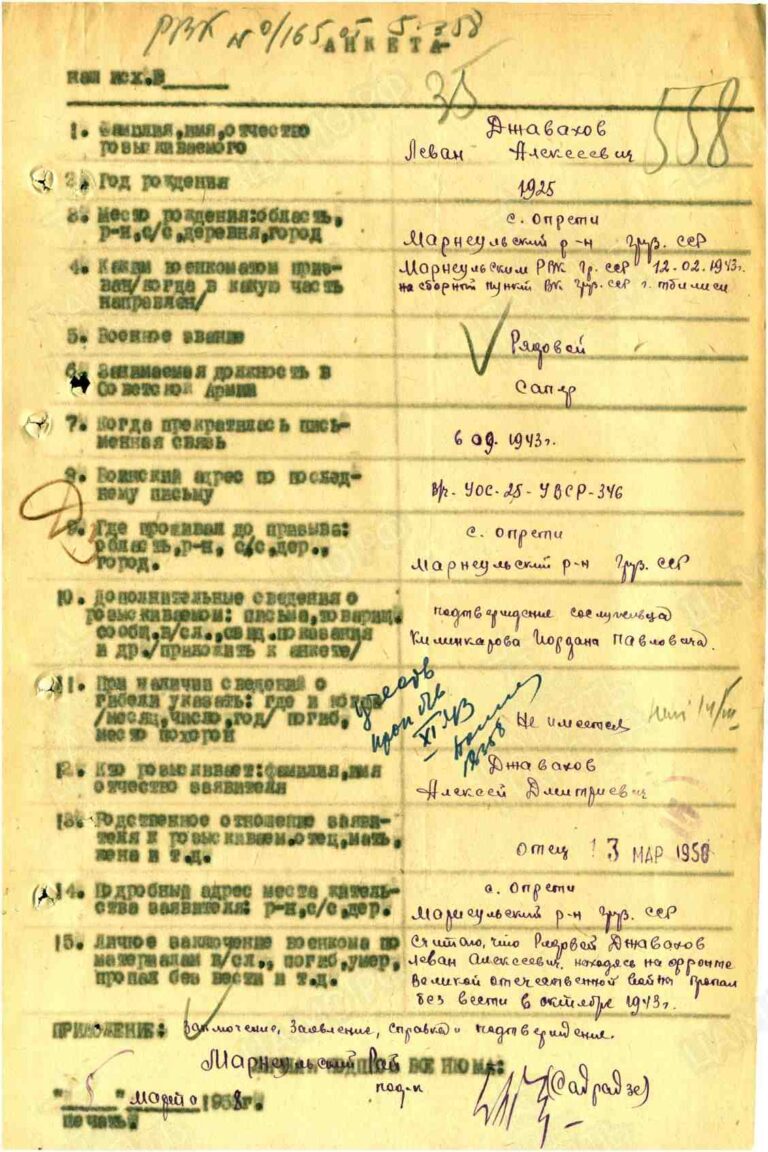 РВК № 0/165 от 5.III 58
АНКЕТА
наш исх.№
35
558
1. Фамилия, имя, отчество
розыскиваемого
Джавахов
Леван Алексеевич
2. Год рождения
1925
3. Место рождения: область,
р-н, с/с, деревня, город
с. Опрети
Марнеульский р-н Груз. ССР
4. Каким военкоматом приз-
ван/когда в какую часть
направлен/
Марнеульским РВК Гр. ССР 12.02.1943г.
на сборный пункт ВК Груз. ССР г. Тбилиси
5. Военное звание
Рядовой
6. Занимаемая должность в
Советской Армии
Сапер
7. Когда прекратилась пись-
менная связь
6 09. 1943г.
8. Воинский адрес по послед-
нему письму
УОС-25-УВСР-346
9. Где проживал до призыва:
область, р-н, с/с, дер.,
город.
с. Опрети
Марнеульский р-н Груз. ССР
10. Дополнительные сведения о
розыскиваемом: письма, товарищ.
сообщ. в/сл., свид. показания
и др./приложить к анкете/
подтверждение сослуживца
Киминкарова Иордана Павловича.
11. При наличии сведений о
гибели указать: где и когда
/месяц, число, год/ погиб,
место похорон
XI 43
Не имеется
12. Кто розыскивает: фамилия, имя
отчество заявителя
Джавахов
Алексей Дмитриевич
13. Родственное отношение заяви-
теля к розыскиваем. отец, мать,
жена и т.д.
отец
13 МАР 1958
14. Подробный адрес места житель-
ства заявителя: р-н, с/с, дер.
с. Опрети
Марнеульский р-н Груз. ССР
15. Личное заключение военкома по
материалам в/сл., погиб, умер,
пропал без вести и т.д.
Считаю, что Рядовой Джавахов
Леван Алексеевич, находясь на фронте
Великой отечественной войны пропал
без вести в октябре 1943г.
ПРИЛОЖЕНИЕ: Заключение, Заявление, справка и подтверждение.
Марнеульский Рай ВОЕНКОМ:
под-к
(Садрадзе)
"5" марта 1958г.
печать.